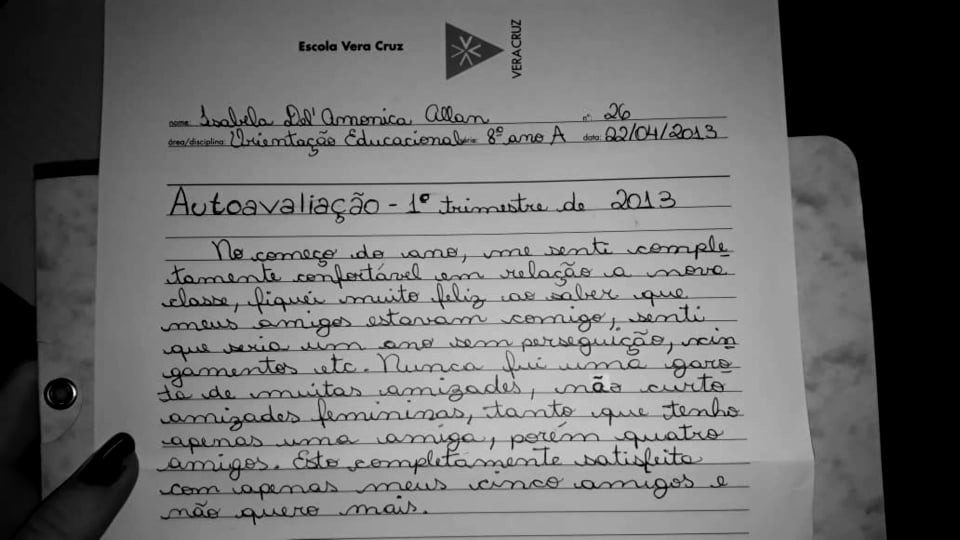 Escola Vera Cruz
VERACRUZ
nome: Isabela Dd'Amonica Allan nº: 26
área/disciplina: Orientação Educacional série: 8º ano A data: 22/04/2013
Autoavaliação - 1º trimestre de 2013
No começo do ano, me senti comple
tamente confortável em relação a nova
classe, fiquei muito feliz ao saber que
meus amigos estavam comigo, senti
que seria um ano sem perseguição, xin
gamentos etc. Nunca fui uma garo
ta de muitas amizades, não curto
amizades femininas, tanto que tenho
apenas uma amiga, porém quatro
amigos. Esto completamente satisfeita
com apenas meus cinco amigos e
não quero mais.